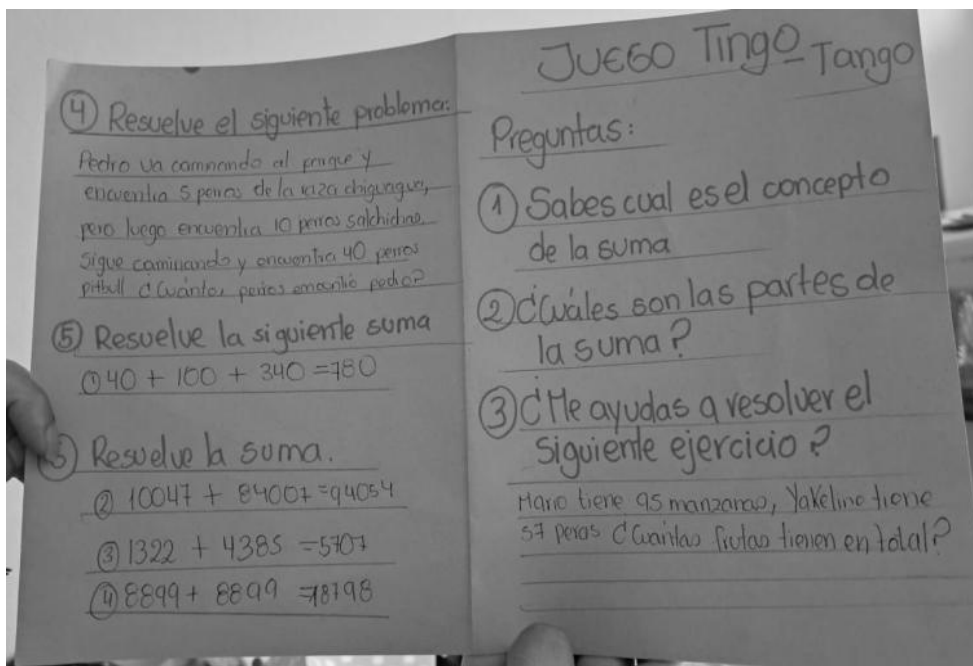 ④ Resuelve el siguiente problema:
Pedro va caminando al parque y
encuentra 5 perros de la raza chiguagua,
pero luego encuentra 10 perros salchichas.
Sigue caminando y encuentra 40 perros
pitbull ¿Cuántos perros encontró pedro?
⑤ Resuelve la siguiente suma
① 40 + 100 + 340 = 780
⑤ Resuelve la suma.
② 10047 + 84007 = 94054
③ 1322 + 4385 = 5707
④ 8899 + 8899 = 18798
JUEGO Tingo Tango
Preguntas:
① Sabes cual es el concepto
de la suma
② ¿Cuáles son las partes de
la suma?
③ ¿Me ayudas a resolver el
siguiente ejercicio?
Mario tiene 95 manzanas, Yakeline tiene
57 peras ¿Cuántas frutas tienen en total?